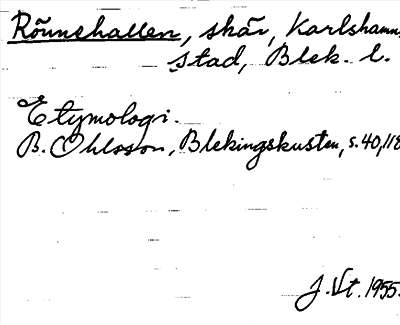 Rönnehallen, skär, Karlshamns
stad, Blek. l.
Etymologi.
B. Ohlsson, Blekingskusten, s. 40, 118
J. Vt. 1955.